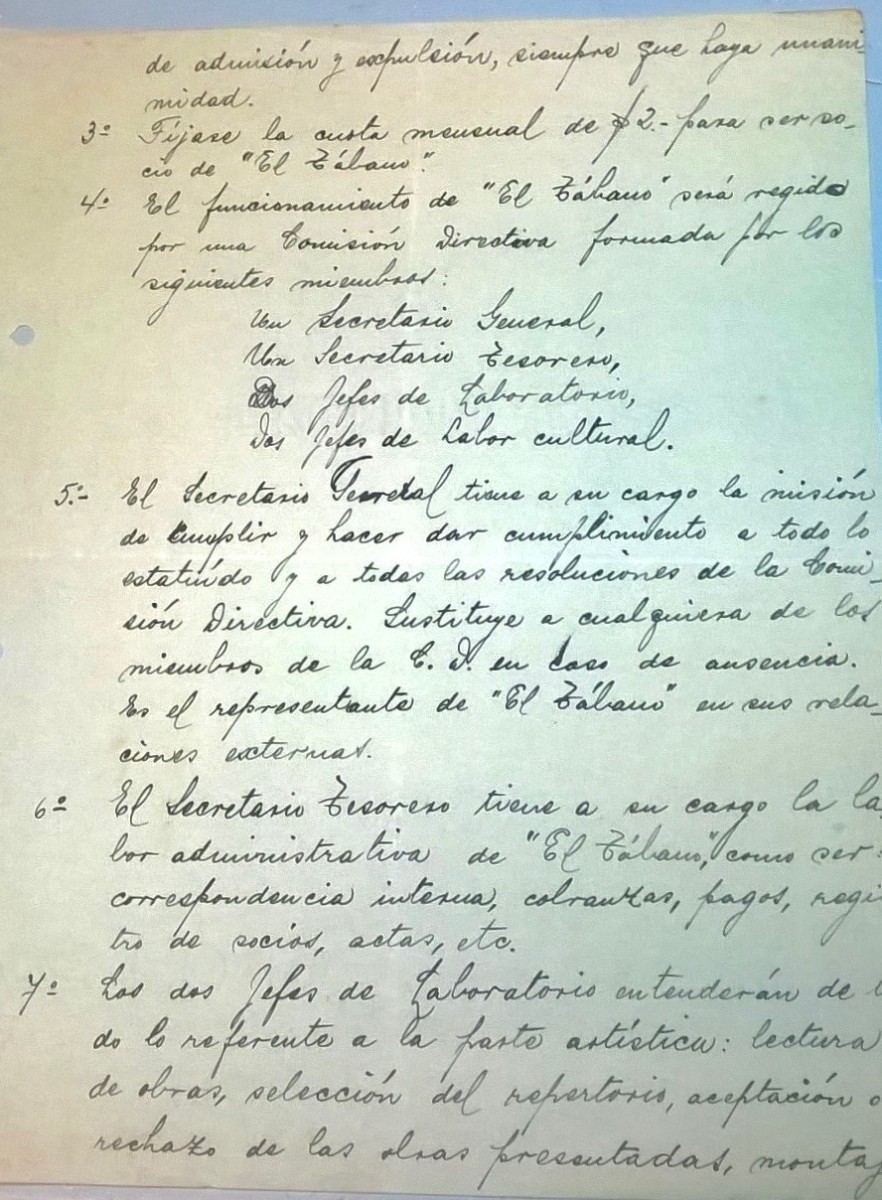 de admisión y expulsión, siempre que haya unani-
midad.
3º Fíjase la cuota mensual de $ 2.- para ser so-
cio de "El Tábano".
4º El funcionamiento de "El Tábano" será regido
por una Comisión Directiva formada por los
siguientes miembros:
Un Secretario General,
Un Secretario Tesorero,
Dos Jefes de Laboratorio,
Dos Jefes de Labor cultural.
5º- El Secretario General tiene a su cargo la misión
de cumplir y hacer dar cumplimiento a todo lo
estatuído y a todas las resoluciones de la Comi-
sión Directiva. Sustituye a cualquiera de los
miembros de la C. D. en caso de ausencia.
Es el representante de "El Tábano" en sus rela-
ciones externas.
6º El Secretario Tesorero tiene a su cargo la la-
bor administrativa de "El Tábano", como ser:
correspondencia interna, cobranzas, pagos, regi
tro de socios, actas, etc.
7º Los dos Jefes de Laboratorio entenderán de t
do lo referente a la parte artística: lectura
de obras, selección del repertorio, aceptación o
rechazo de las obras presentadas, montaj